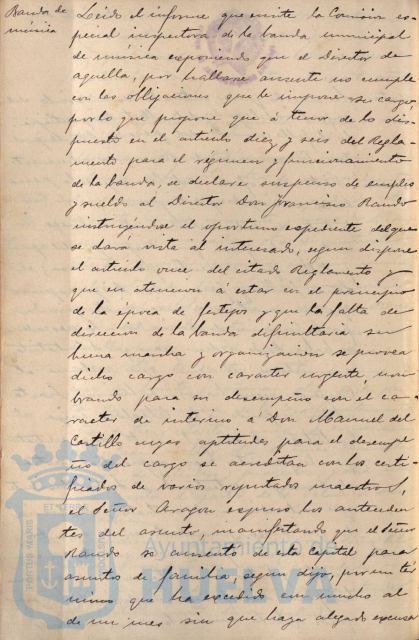 Banda de
música
Leido el informe que emite la Comisión es
pecial inspectora de la banda municipal
de música exponiendo que el Director de
aquella, por hallarse ausente no cumple
con las obligaciones que le impone su cargo,
por lo que propone que á tenor de lo dis-
puesto en el artículo diez y seis del Regla-
mento para el régimen y funcionamiento
de la banda, se declare suspenso de empleo
y sueldo al Director Don Francisco Rando
instruyéndose el oportuno expediente del que
se dará vista al interesado, segun dispone
el artículo once del citado Reglamento y
que en atención á estar en el principio
de la época de festejos y que la falta de
dirección de la banda dificultaria su
buena marcha y organización se provea
dicho cargo con caracter urgente, nom
brando para su desempeño con el ca-
racter de interino á Don Manuel del
Castillo cuyas aptitudes para el desempe
ño del cargo se acreditan con los certi-
ficados de varios reputados maestros,
el Señor Aragon expuso los anteceden
tes del asunto, manifestando que el Señor
Rando se ausentó de esta Capital para
asuntos de familia, segun dijo, por un tér
mino que ha excedido en mucho al
de un mes sin que haya alegado excusa
PORTUS MARIS
Ayuntamiento de
HUELVA